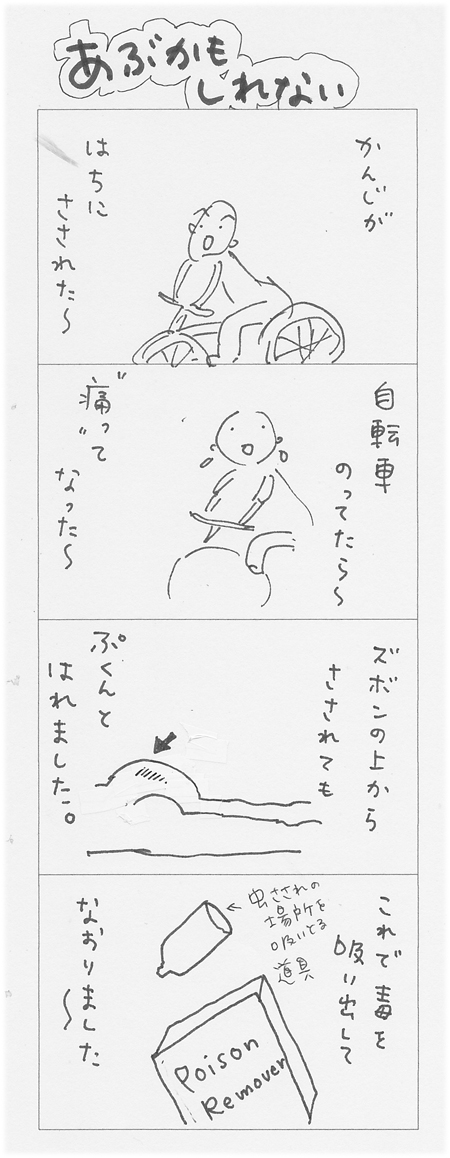 あぶかも
しれない
かんじが
はちに
さされた〜
自転車
のってたら〜
"痛"って
なった〜
ズボンの上から
さされても
ぷくんと
はれました。
これで毒を
吸い出して
虫さされの
場所を
吸いとる
道具
Poison
Remover
なおりました
〜